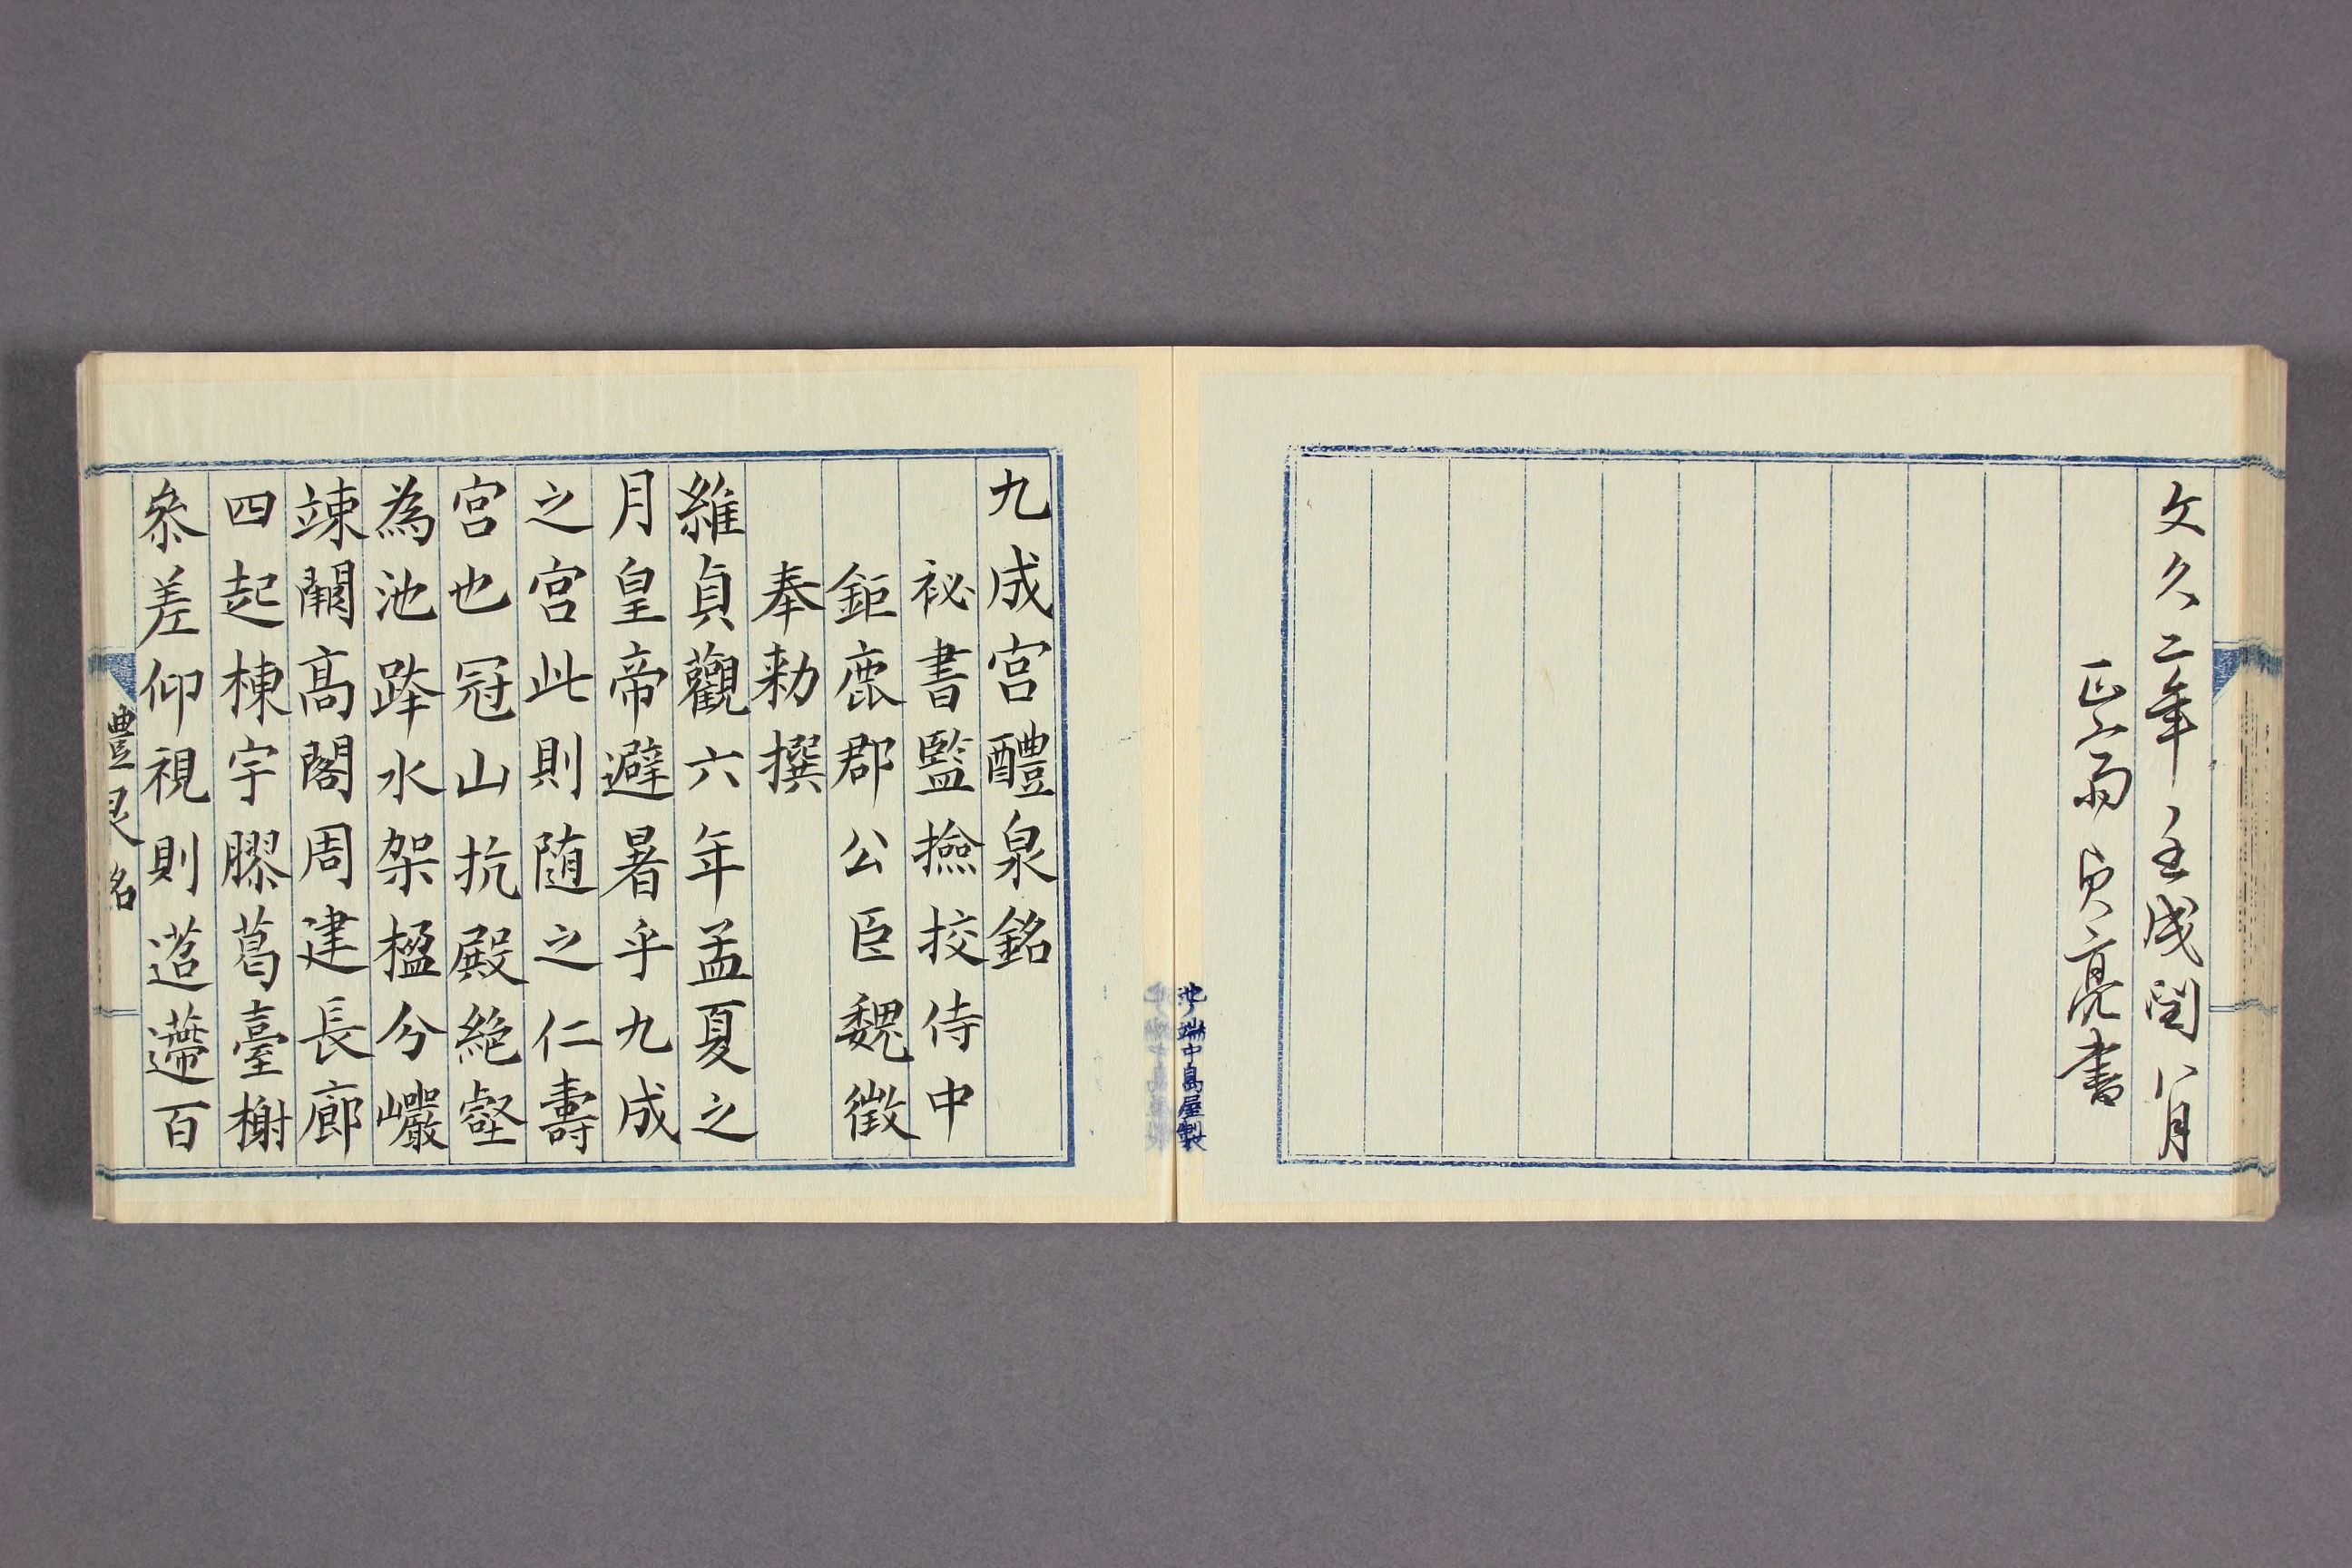 文久二年壬戌閏八月
正齋貞亮書
池ノ端中島屋製
九成宮醴泉銘
祕書監撿挍侍中
鉅鹿郡公臣魏徵
奉勅撰
維貞觀六年孟夏之
月皇帝避暑乎九成
之宮此則随之仁壽
宮也冠山抗殿絶壑
為池跨水架楹分巖
竦闕高閣周建長廊
四起棟宇膠葛臺榭
叅差仰視則迢遰百